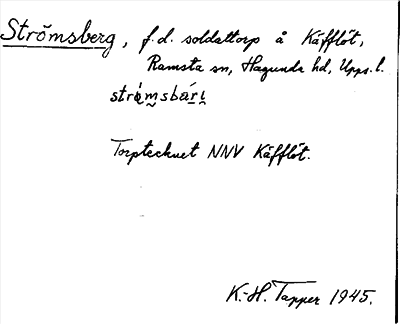 Strömsberg, f.d. soldattorp å Käfflöt,
Ramsta sn, Hagunda hd, Upps. l.
strömsbäri
Torptecknet NNV Käfflöt.
K.-H. Tapper 1945.